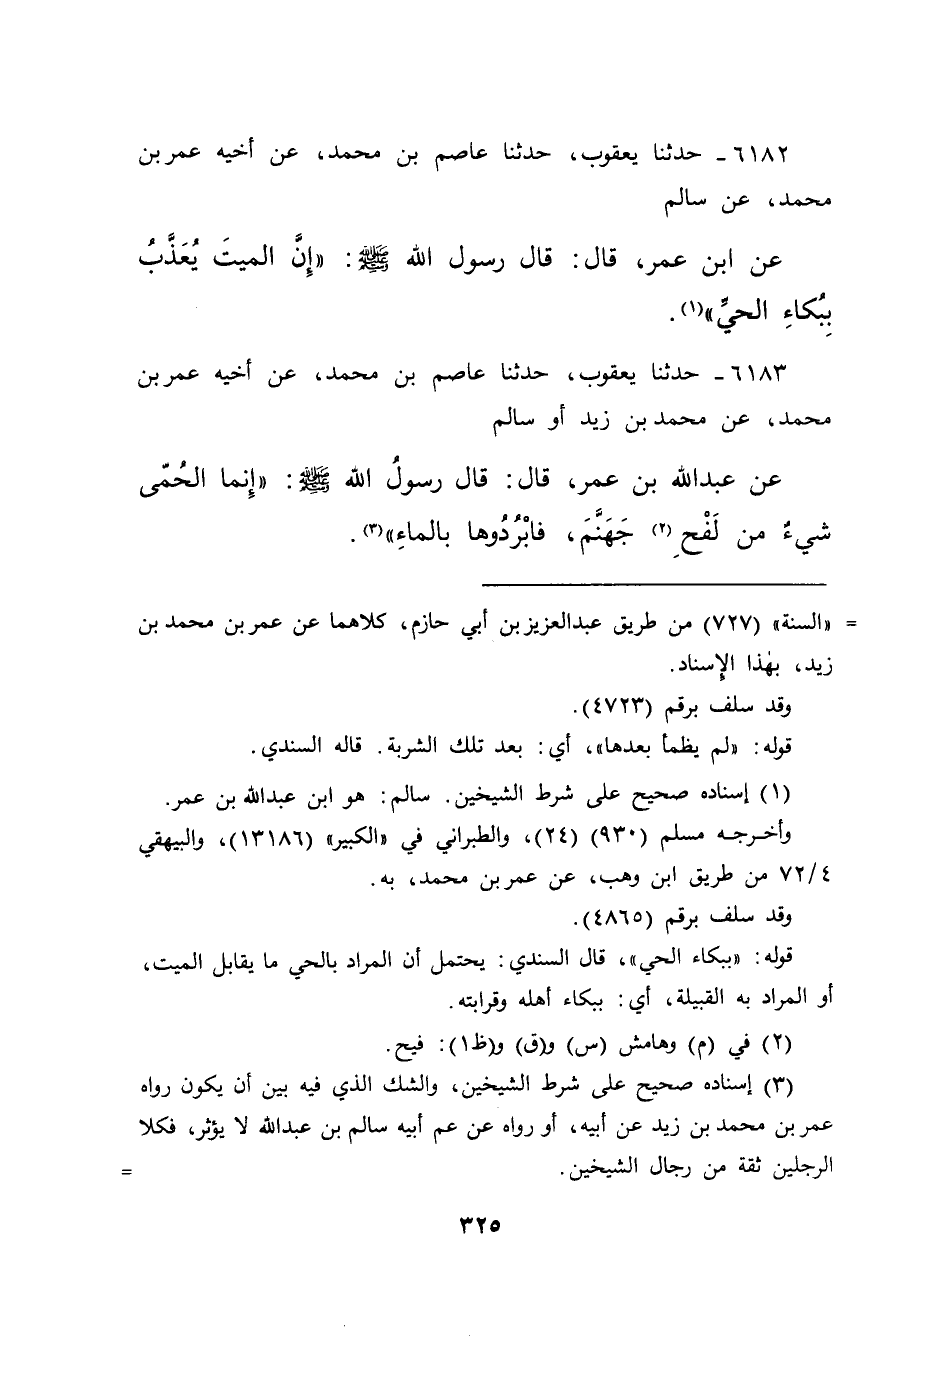 ٦١٨٢ـ حدثنا يعقوب، حدثنا عاصم بن محمد، عن أخيه عمر بن
محمد، عن سالم
عن ابن عمر، قال: قال رسول الله ﷺ: «إِنَّ الميتَ يُعَذَّبُ
بِبُكاءِ الحيِّ»(١).
٦١٨٣ـ حدثنا يعقوب، حدثنا عاصم بن محمد، عن أخيه عمر بن
محمد، عن محمد بن زيد أو سالم
عن عبدالله بن عمر، قال: قال رسولُ الله ﷺ: «إِنما الحُمّى
شيءٌ من لَفْحِ(٢) جَهَنَّمَ، فابْرُدُوها بالماءِ»(٣).
= «السنة» (٧٢٧) من طريق عبدالعزيز بن أبي حازم، كلاهما عن عمر بن محمد بن
زيد، بهٰذا الإِسناد.
وقد سلف برقم (٤٧٢٣).
قوله: «لم يظمأ بعدها»، أي: بعد تلك الشربة. قاله السندي.
(١) إسناده صحيح على شرط الشيخين. سالم: هو ابن عبدالله بن عمر.
وأخرجه مسلم (٩٣٠) (٢٤)، والطبراني في «الكبير» (١٣١٨٦)، والبيهقي
٧٢/٤ من طريق ابن وهب، عن عمر بن محمد، به.
وقد سلف برقم (٤٨٦٥).
قوله: «ببكاء الحي»، قال السندي: يحتمل أن المراد بالحي ما يقابل الميت،
أو المراد به القبيلة، أي: ببكاء أهله وقرابته.
(٢) في (م) وهامش (س) و(ق) و(ظ١): فيح.
(٣) إسناده صحيح على شرط الشيخين، والشك الذي فيه بين أن يكون رواه
عمر بن محمد بن زيد عن أبيه، أو رواه عن عم أبيه سالم بن عبدالله لا يؤثر، فكلا
الرجلين ثقة من رجال الشيخين. =
٣٢٥